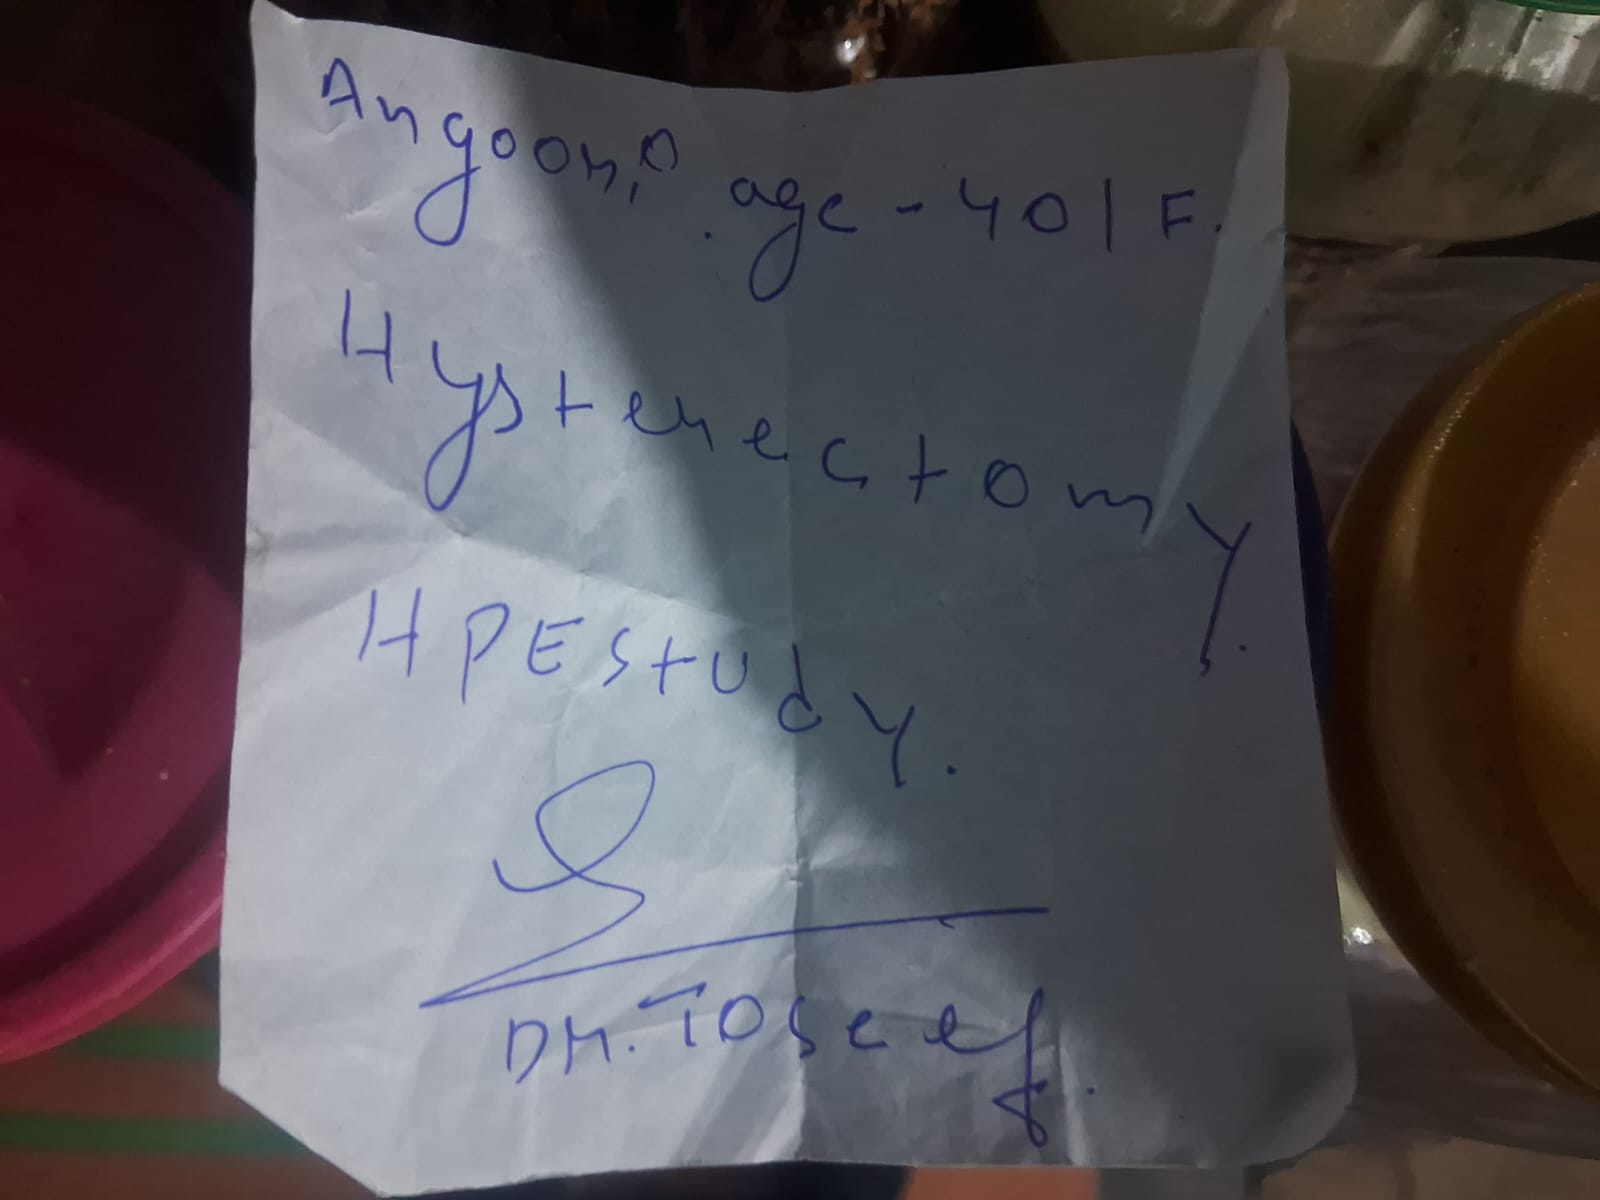 Angoori age - 40 / F.
Hysterectomy.
HPE Study.
Dr. Toseef.